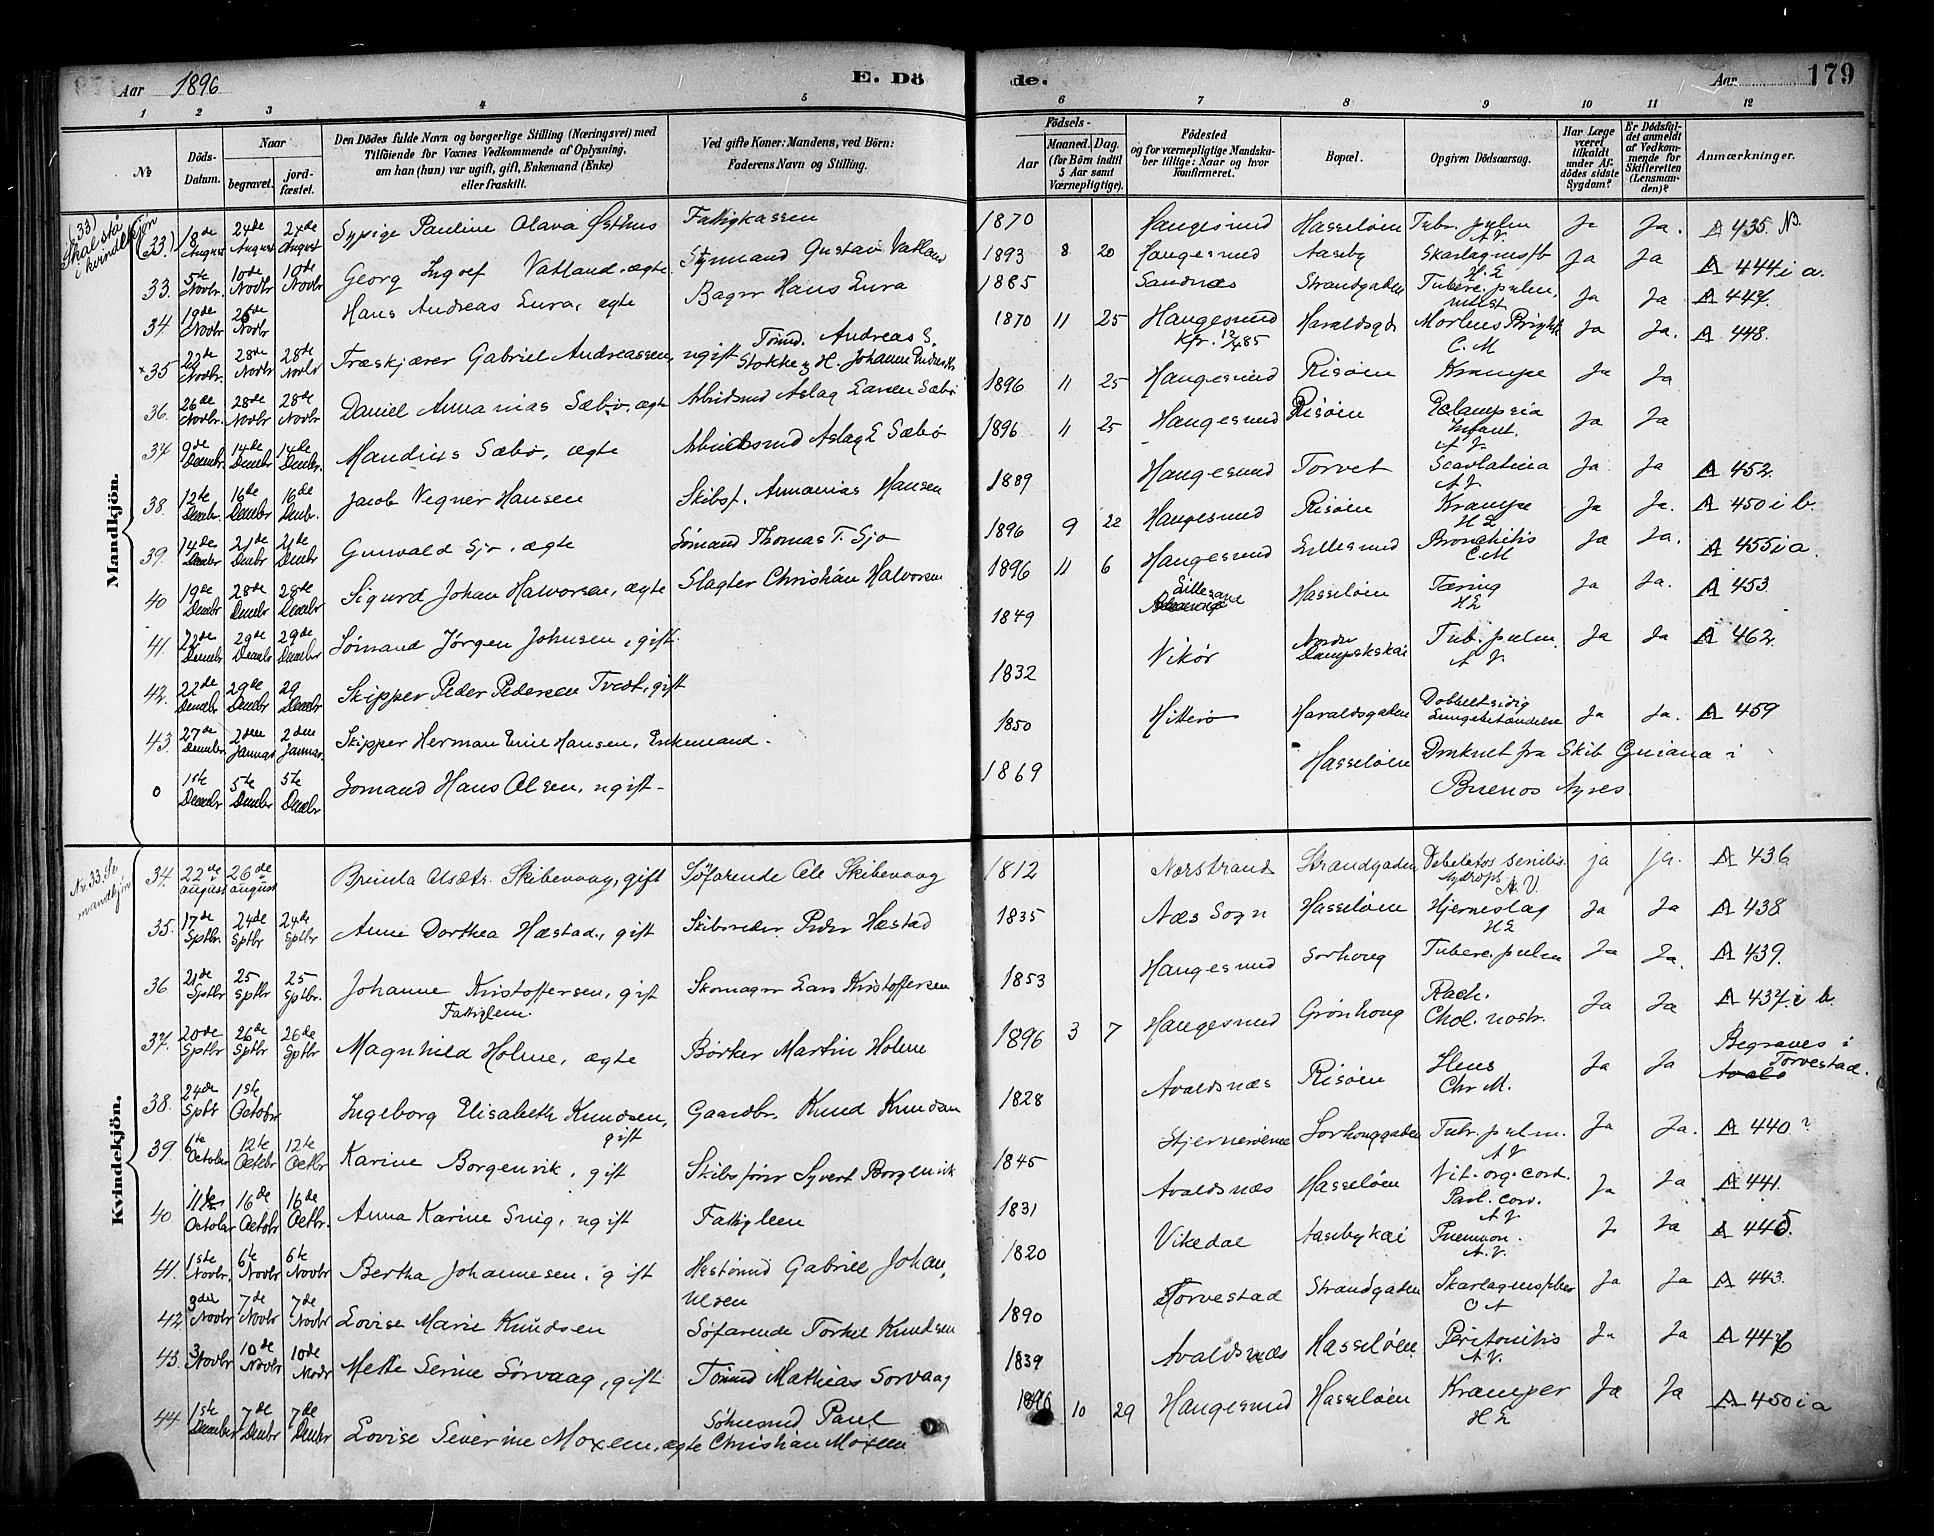 Aar 1896 E. Dö de. Aar 179
1 2 3 4 5 6 7 8 9 10 11 12
№ Döds-Datum. Naar begravet. jordfæstet. Den Dödes fulde Navn og borgerlige Stilling (Næringsvei) med Tilföiende for Voxnes Vedkommende af Oplysning, om han (hun) var ugift, gift, Enkemand (Enke) eller fraskilt. Ved gifte Koner: Mandens, ved Börn: Faderens Navn og Stilling. Födsels- Aar Maaned. Dag. (for Börn indtil 5 Aar samt Værnepligtige). Födested og for værnepligtige Mandskaber tillige: Naar og hvor konfirmeret. Bopæl. Opgiven Dödsaarsag. Har Læge været tilkaldt under Afdödes sidste Sygdom? Er Dödsfaldet anmeldt af Vedkommende for Skifteretten (Lensmanden)? Anmærkninger.
(33) Skal stå i kvindekjön
Mandkjön.
(33) 18de August 24de August 24de August Sypige Pauline Olava Østhus Fattigkassen 1870 Haugesund Hasseløen Tub. pulm. A.V. Ja Ja. A 435. NB.
33. 5te Novbr. 10de Novbr 10de Novbr Georg Ingolf Vatland, ægte Styrmand Gustav Vatland 1893 8 20 Haugesund Aasby Skarlagensfb H.E Ja Ja A 444 i a.
34 19de Novbr 26de Novbr Hans Andreas Lura, ægte Bager Hans Lura 1885 Sandnæs Strandgaden Tuberc. pulm. Ja Ja A 447.
×35 22de Novbr. 28de Novbr 28de Novbr Træskjærer Gabriel Andreassen, ugift Tømd. Andreas E. Stokke & H. Johanne 1870 11 25 Haugesund Kfr. 12/4 85 Haraldsgd. Morbus Brightii C. M Ja Ja. A 448.
36. 26de Novbr. 28de Novbr 28de Novbr Daniel Annanias Sæbø, ægte Arbeidsmd Aslag Larsen Sæbø 1896 11 25 Haugesund Risøen Krampe Ja Ja
37 9de Decembr. 14de Decembr 14de Decbr. Maudius Sæbø, ægte Arbeidsmd Aslag E Sæbø 1896 11 25 Haugesund Risøen Eclampsia Infant. A V. Ja Ja
38. 12te Decembr. 16de Decembr 16de Decbr. Jacob Vegner Hansen Skibsf. Annanias Hansen 1889 Haugesund Torvet Scarlatina A V. Ja Ja A 452.
39. 14de Decbr 21de Decembr 21de Decembr Gunvald Sjo, ægte Sømand Thomas T. Sjo 1896 9 22 Haugesund Risøen Krampe H E Ja Ja. A 450 i b.
40 19de Decembr 28de Decembr 28de Decembr Sigurd Johan Halvorsen, ægte Slagter Christian Halvorsen 1896 11 6 Haugesund Lillesund Bronchitis C.M Ja Ja. A 455 i a.
41. 22de Decembr 29de Decembr 29de Decembr Sømand Jørgen Johnsen, gift. 1849 Lillesand Hasseløen Tæring H E Ja Ja. A 453.
42. 22de Decembr 29de Decembr 29 Decembr Skipper Peder Pedersen Tvedt, gift 1832 Vikør Nordre Dampskskai Tub. pulm. A V. Ja Ja A 462.
43. 27de Decembr 2den Januar 2den Januar. Skipper Herman Emil Hansen, Enkemand. 1850 Hitterø Haraldsgaden Dobbeltsidig Lungebetændelse Ja Ja. A 459
0 1ste Decembr 5te Decembr 5te Decembr Sømand Hans Olsen, ugift 1869 Hasseløen Druknet fra Skib Guiana i Buenos Ayres
Nr. 33. Se mandkjön
Kvindekjön.
34. 22de august 26de august Brinla Skibevaag, gift Søfarende Ole Skibevaag 1812 Nærstrand Strandgaden Debelitas senilis. Hydrops A.V. ja ja. A 436
35. 17de Sptbr. 24de Sptbr 24de Sptbr Anne Dorthea Hæstad, gift Skibsreder Peder Hæstad 1835 Næs Sogn Hasseløen Hjerneslag H E Ja Ja A 438
36 21de Sptbr 25 Sptbr 25 Sptbr. Johanne Kristoffersen, gift Fattiglem. Skomager Lars Kristoffersen 1853 Haugesund Sørhoug Tuberc. pulm Ja Ja. A 439.
37. 20de Sptbr 26de Sptbr 26de Sptbr Magnhild Holme, ægte Børker Martin Holme 1896 3 7 Haugesund Grønhoug Rach. Chol. nostr. Ja Ja A 437. i b.
38. 24de Sptbr 1ste Octobr Ingeborg Elisabeth Knudsen, gift Gaardbr. Knud Knudsen 1828 Avaldsnæs Risøen Ileus Chr M. Ja Ja Begraves i Torvestad.
39. 6te October 12te Octbr 12te Octbr Karine Borgenvik, gift Skibsfører Syvert Borgenvik 1845 Stjernerøerne Sørhouggaden Tub. pulm. A V Ja Ja. A 440 ?
40 11te October 16de October 16de Octbr. Anna Karine Smig, ugift Fattiglem 1831 Avaldsnæs Hasseløen Vit. org. cord. Paul. cord. A V. Ja Ja A 441.
41. 1ste Novbr. 6te Novbr 6te Novbr Bertha Johannesen, gift Gabriel Johannesen 1820 Vikedal Aasbykai Pneumon. A.V. Ja Ja A 445.
42 3die Novbr 7de Novbr 7de Novbr Lovise Marie Knudsen Søfarende Torkel Knudsen 1890 Torvestad Strandgaden Skarlagensfeber O A Ja Ja A 443.
43. 3 Novbr 10de Novbr 10de Novbr Mette Serine Sørvaag, gift Tømd Mathias Sørvaag 1839 Avaldsnæs Hasseløen Peritonitis A V. Ja Ja A 446
44 1ste Decembr 7de Decbr 7de Decbr Lovise Severine Moxeen, ægte Paul Christian Moxeen 1896 10 29 Haugesund Hasseløen Kramper H E Ja Ja A 450 i a